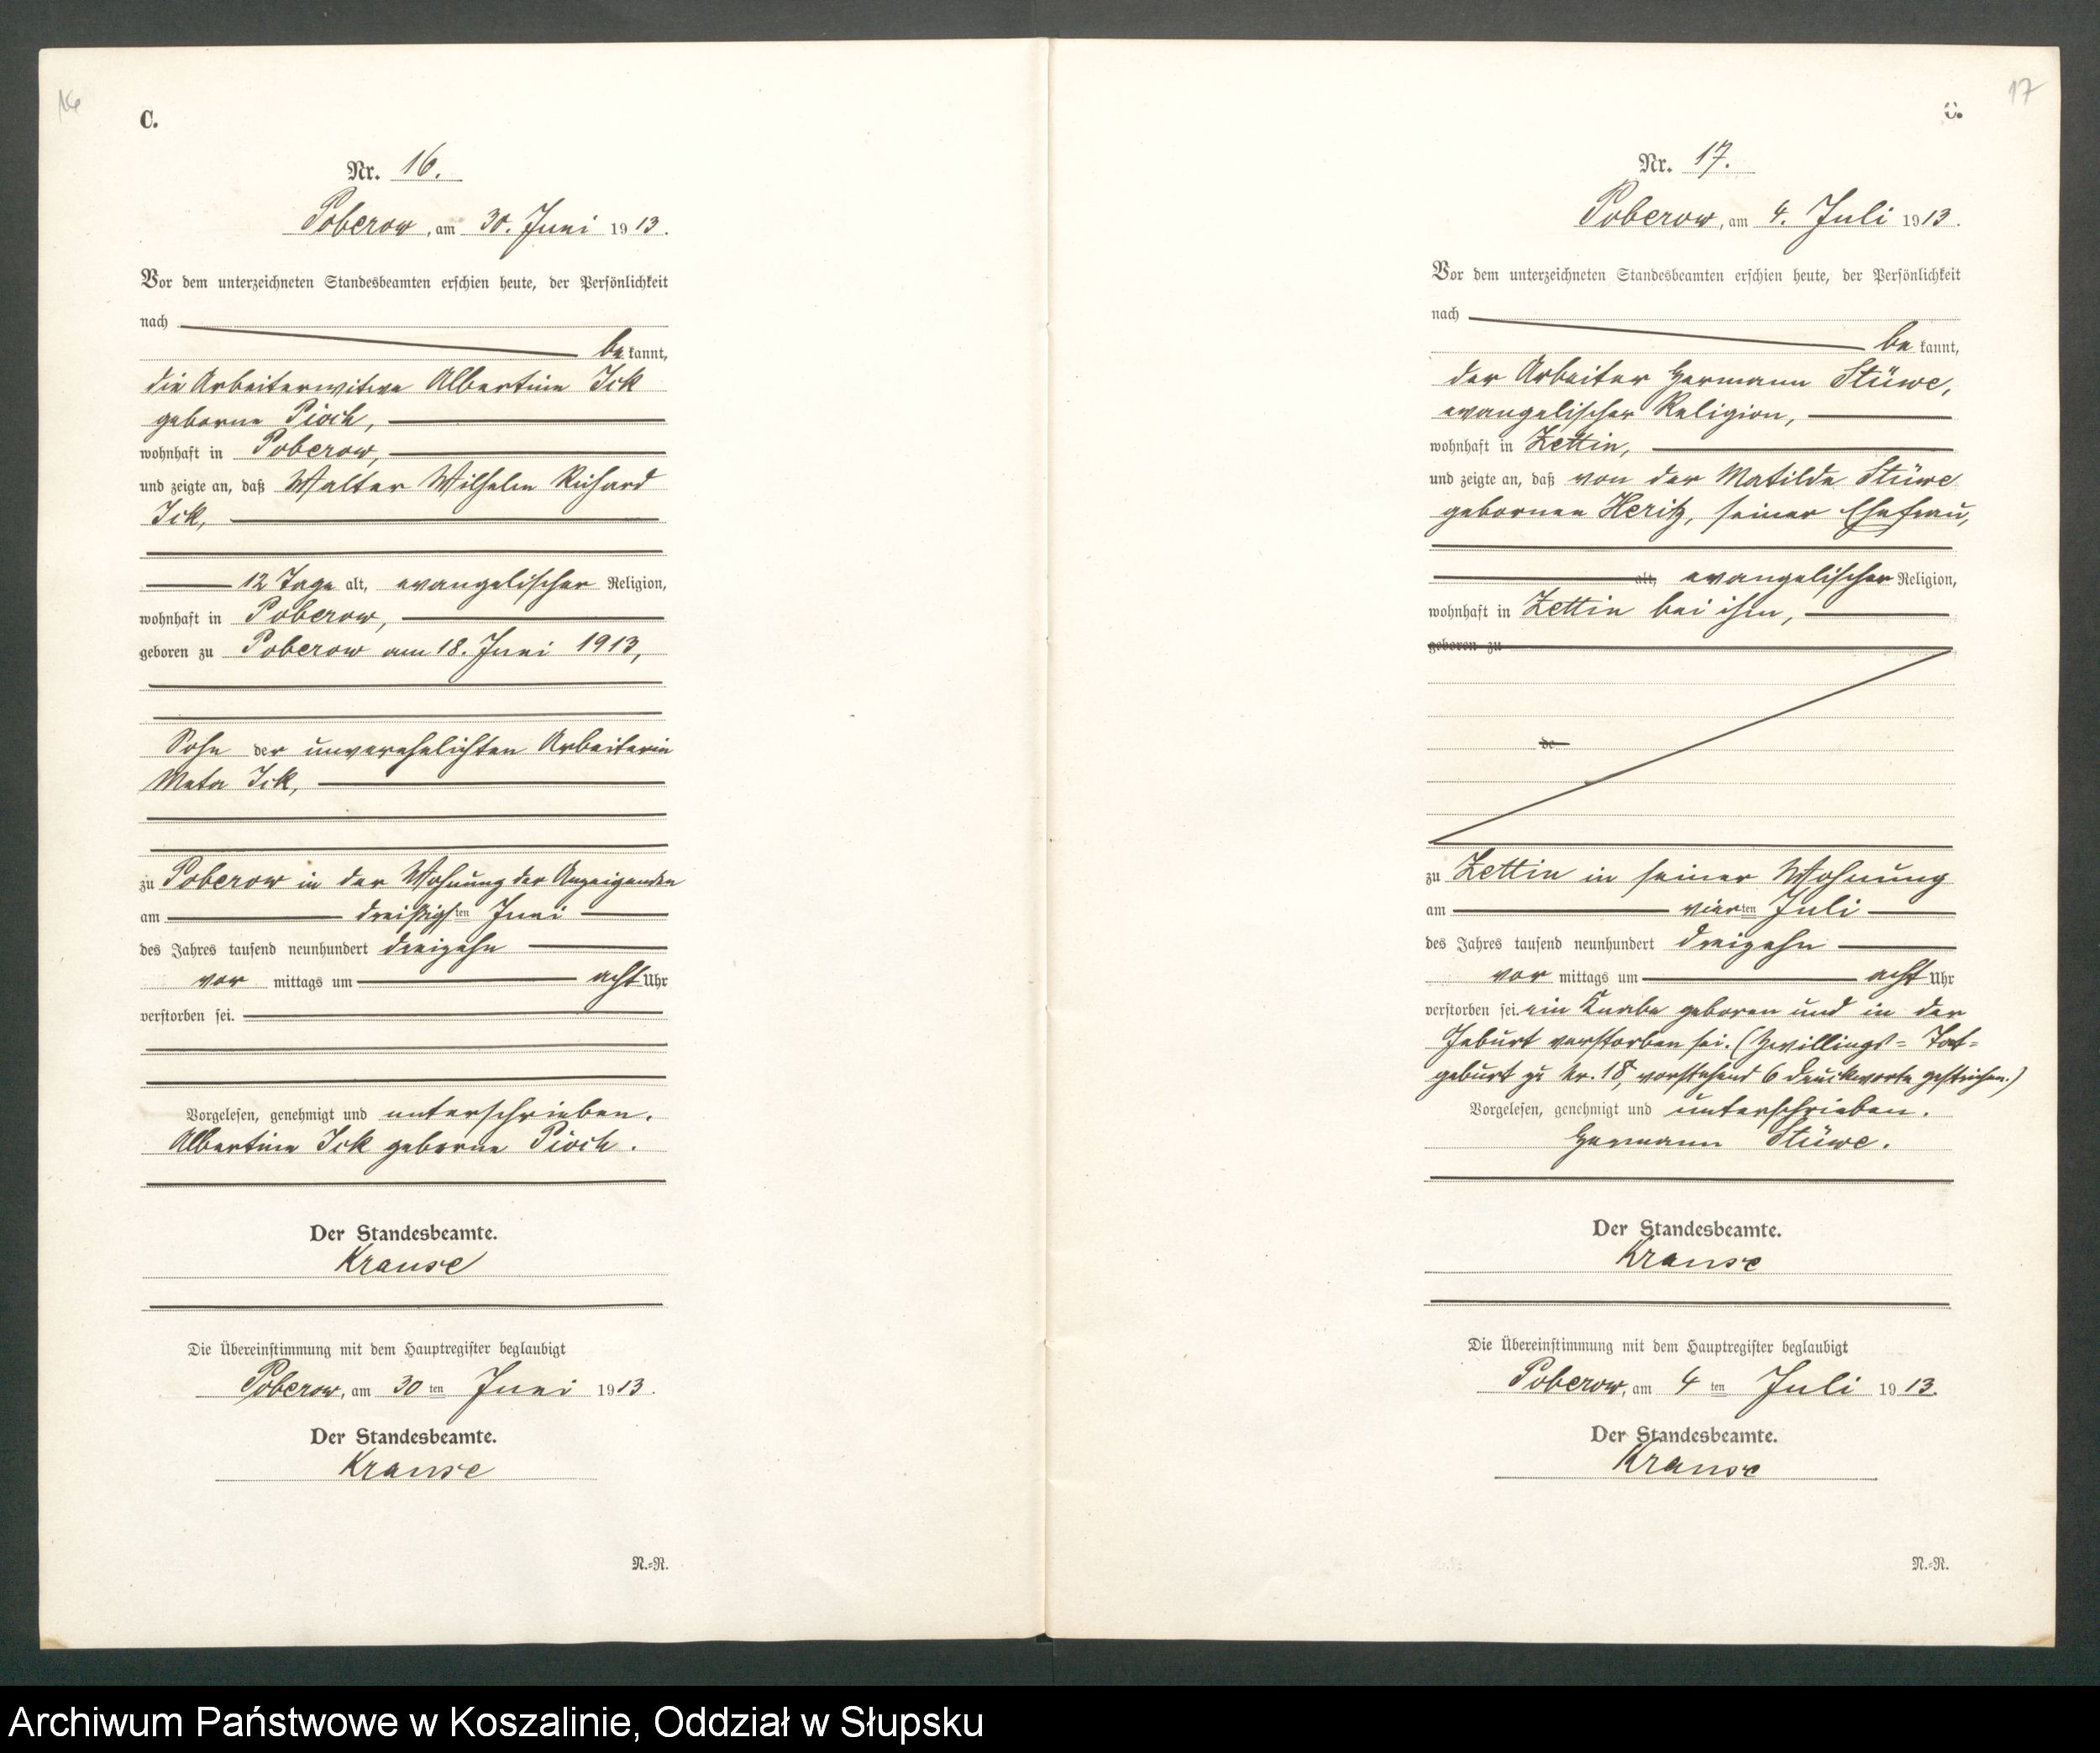 16
C.
Nr. 16.
Poberow, am 30. Juni 1913.
Vor dem unterzeichneten Standesbeamten erschien heute, der Persönlichkeit
nach
be kannt,
die Arbeiterwitwe Albertine Ick
geborne Pioch,
wohnhaft in Poberow,
und zeigte an, daß Walter Wilhelm Richard
Ick,
12 Tage alt, evangelischer Religion,
wohnhaft in Poberow,
geboren zu Poberow am 18. Juni 1913,
Sohn der unverehelichten Arbeiterin
Meta Ick,
zu Poberow in der Wohnung der Anzeigenden
am dreißigsten Juni
des Jahres tausend neunhundert dreizehn
vor mittags um acht Uhr
verstorben sei.
Vorgelesen, genehmigt und unterschrieben.
Albertine Ick geborne Pioch.
Der Standesbeamte.
Krause
Die Übereinstimmung mit dem Hauptregister beglaubigt
Poberow, am 30 ten Juni 1913.
Der Standesbeamte.
Krause
N.=R.
17
C.
Nr. 17.
Poberow, am 4. Juli 1913.
Vor dem unterzeichneten Standesbeamten erschien heute, der Persönlichkeit
nach
be kannt,
der Arbeiter Hermann Stüwe,
evangelischer Religion,
wohnhaft in Zettin,
und zeigte an, daß von der Matilde Stüwe
gebornen Heritz, seiner Ehefrau,
alt, evangelischer Religion,
wohnhaft in Zettin bei ihm,
geboren zu
de
zu Zettin in seiner Wohnung
am vierten Juli
des Jahres tausend neunhundert dreizehn
vor mittags um acht Uhr
verstorben sei. ein Knabe geboren und in der
Geburt verstorben sei. (Zwillings= Tot=
geburt zu Nr. 18, vorstehend 6 Druckworte gestrichen.)
Vorgelesen, genehmigt und unterschrieben.
Hermann Stüwe.
Der Standesbeamte.
Krause
Die Übereinstimmung mit dem Hauptregister beglaubigt
Poberow, am 4 ten Juli 1913.
Der Standesbeamte.
Krause
N.=R.
Archiwum Państwowe w Koszalinie, Oddział w Słupsku